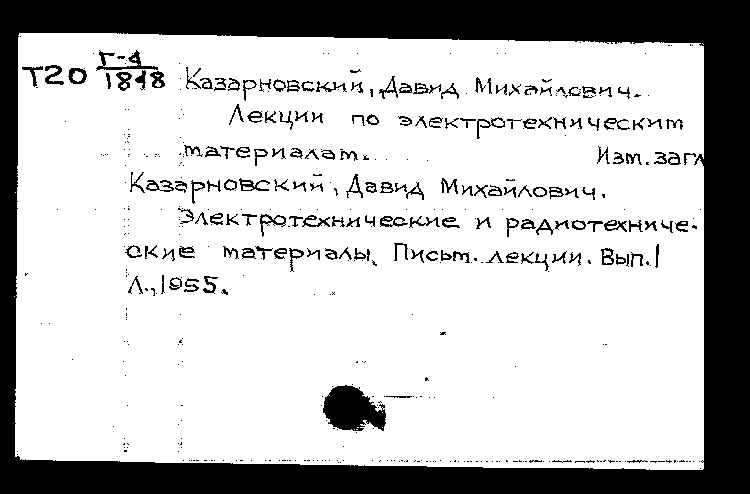 Т20 Г-4
1818
Казарновский, Давид Михайлович.
Лекции по электротехническим
материалам. Изм. загл
Казарновский, Давид Михайлович.
Электротехнические и радиотехниче-
ские материалы. Письм. лекции. Вып. 1
Л., 1955.